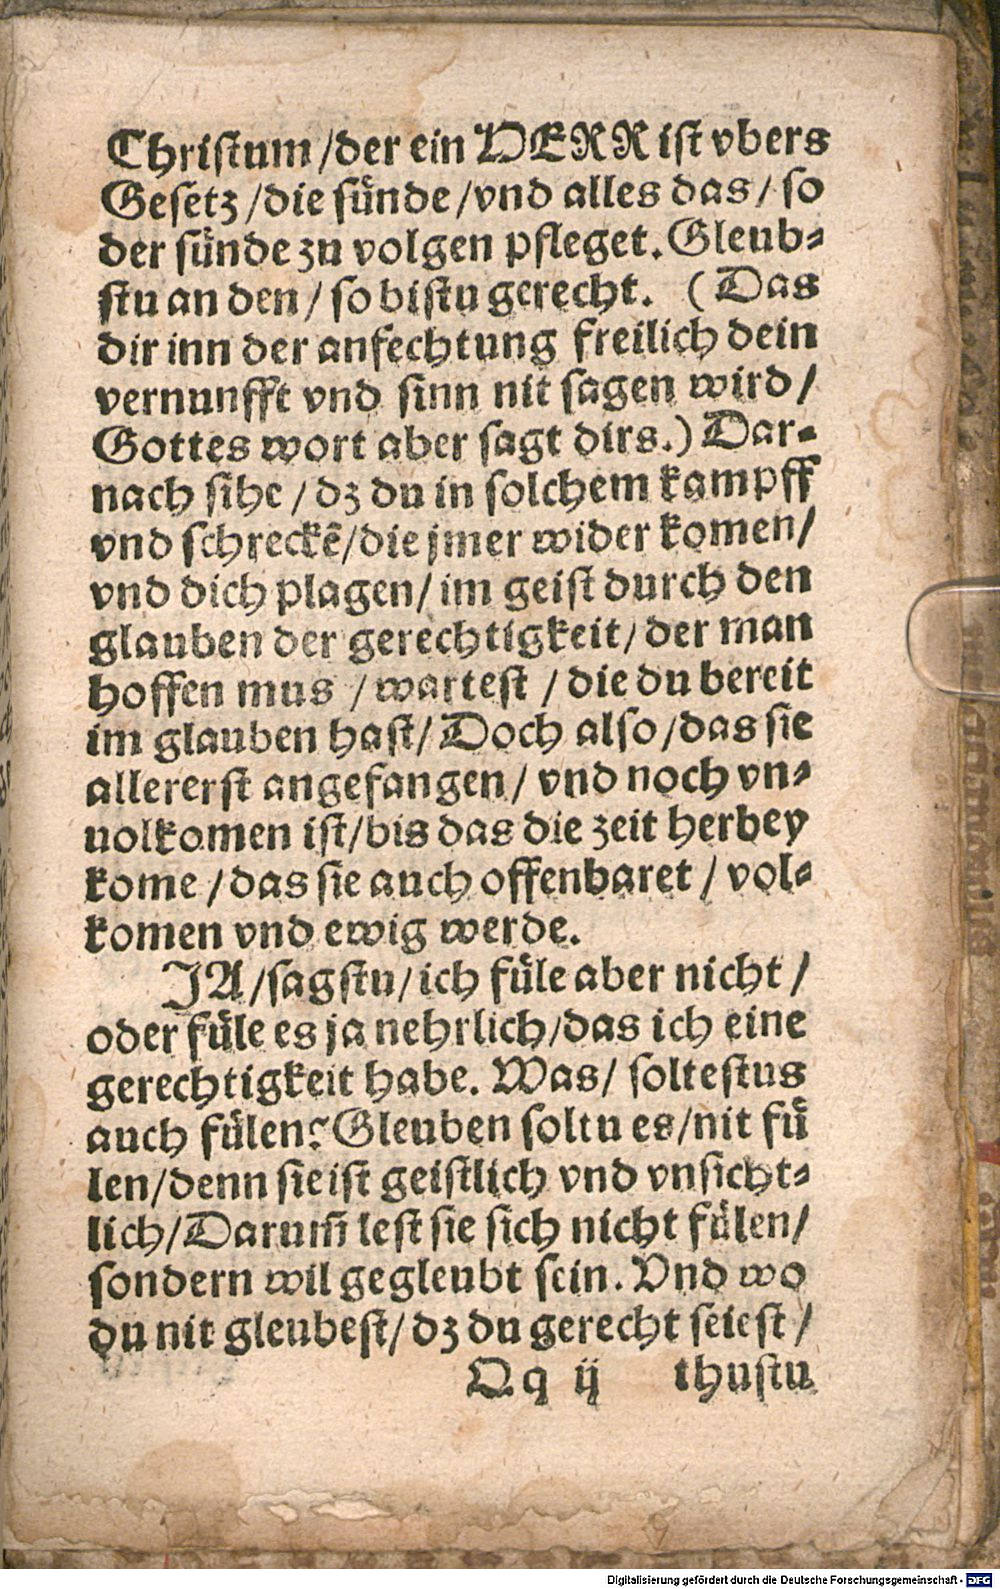 Christum /der ein HERR ist vbers
Gesetz /die sünde /vnd alles das / so
der sünde zu volgen pfleget. Gleub-
stu an den / so bistu gerecht. (Das
dir inn der anfechtung freilich dein
vernunfft vnd sinn nit sagen wird /
Gottes wort aber sagt dirs.) Dar-
nach sihe / dz du in solchem kampff
vnd schreckē/die jmer wider komen/
vnd dich plagen/ im geist durch den
glauben der gerechtigkeit/ der man
hoffen mus / wartest / die du bereit
im glauben hast/ Doch also /das sie
allererst angefangen / vnd noch vn-
uolkomen ist/bis das die zeit herbey
kome /das sie auch offenbaret / vol-
komen vnd ewig werde.
JA /sagstu/ ich füle aber nicht /
oder füle es ja nehrlich/das ich eine
gerechtigkeit habe. Was/ soltestus
auch fülen? Gleuben soltu es/nit fü
len/denn sie ist geistlich vnd vnsicht-
lich/Darum̄ lest sie sich nicht fülen/
sondern wil gegleubt sein. Vnd wo
du nit gleubest/ dz du gerecht seiest /
Qq ij thustu
Digitalisierung gefördert durch die Deutsche Forschungsgemeinschaft - DFG